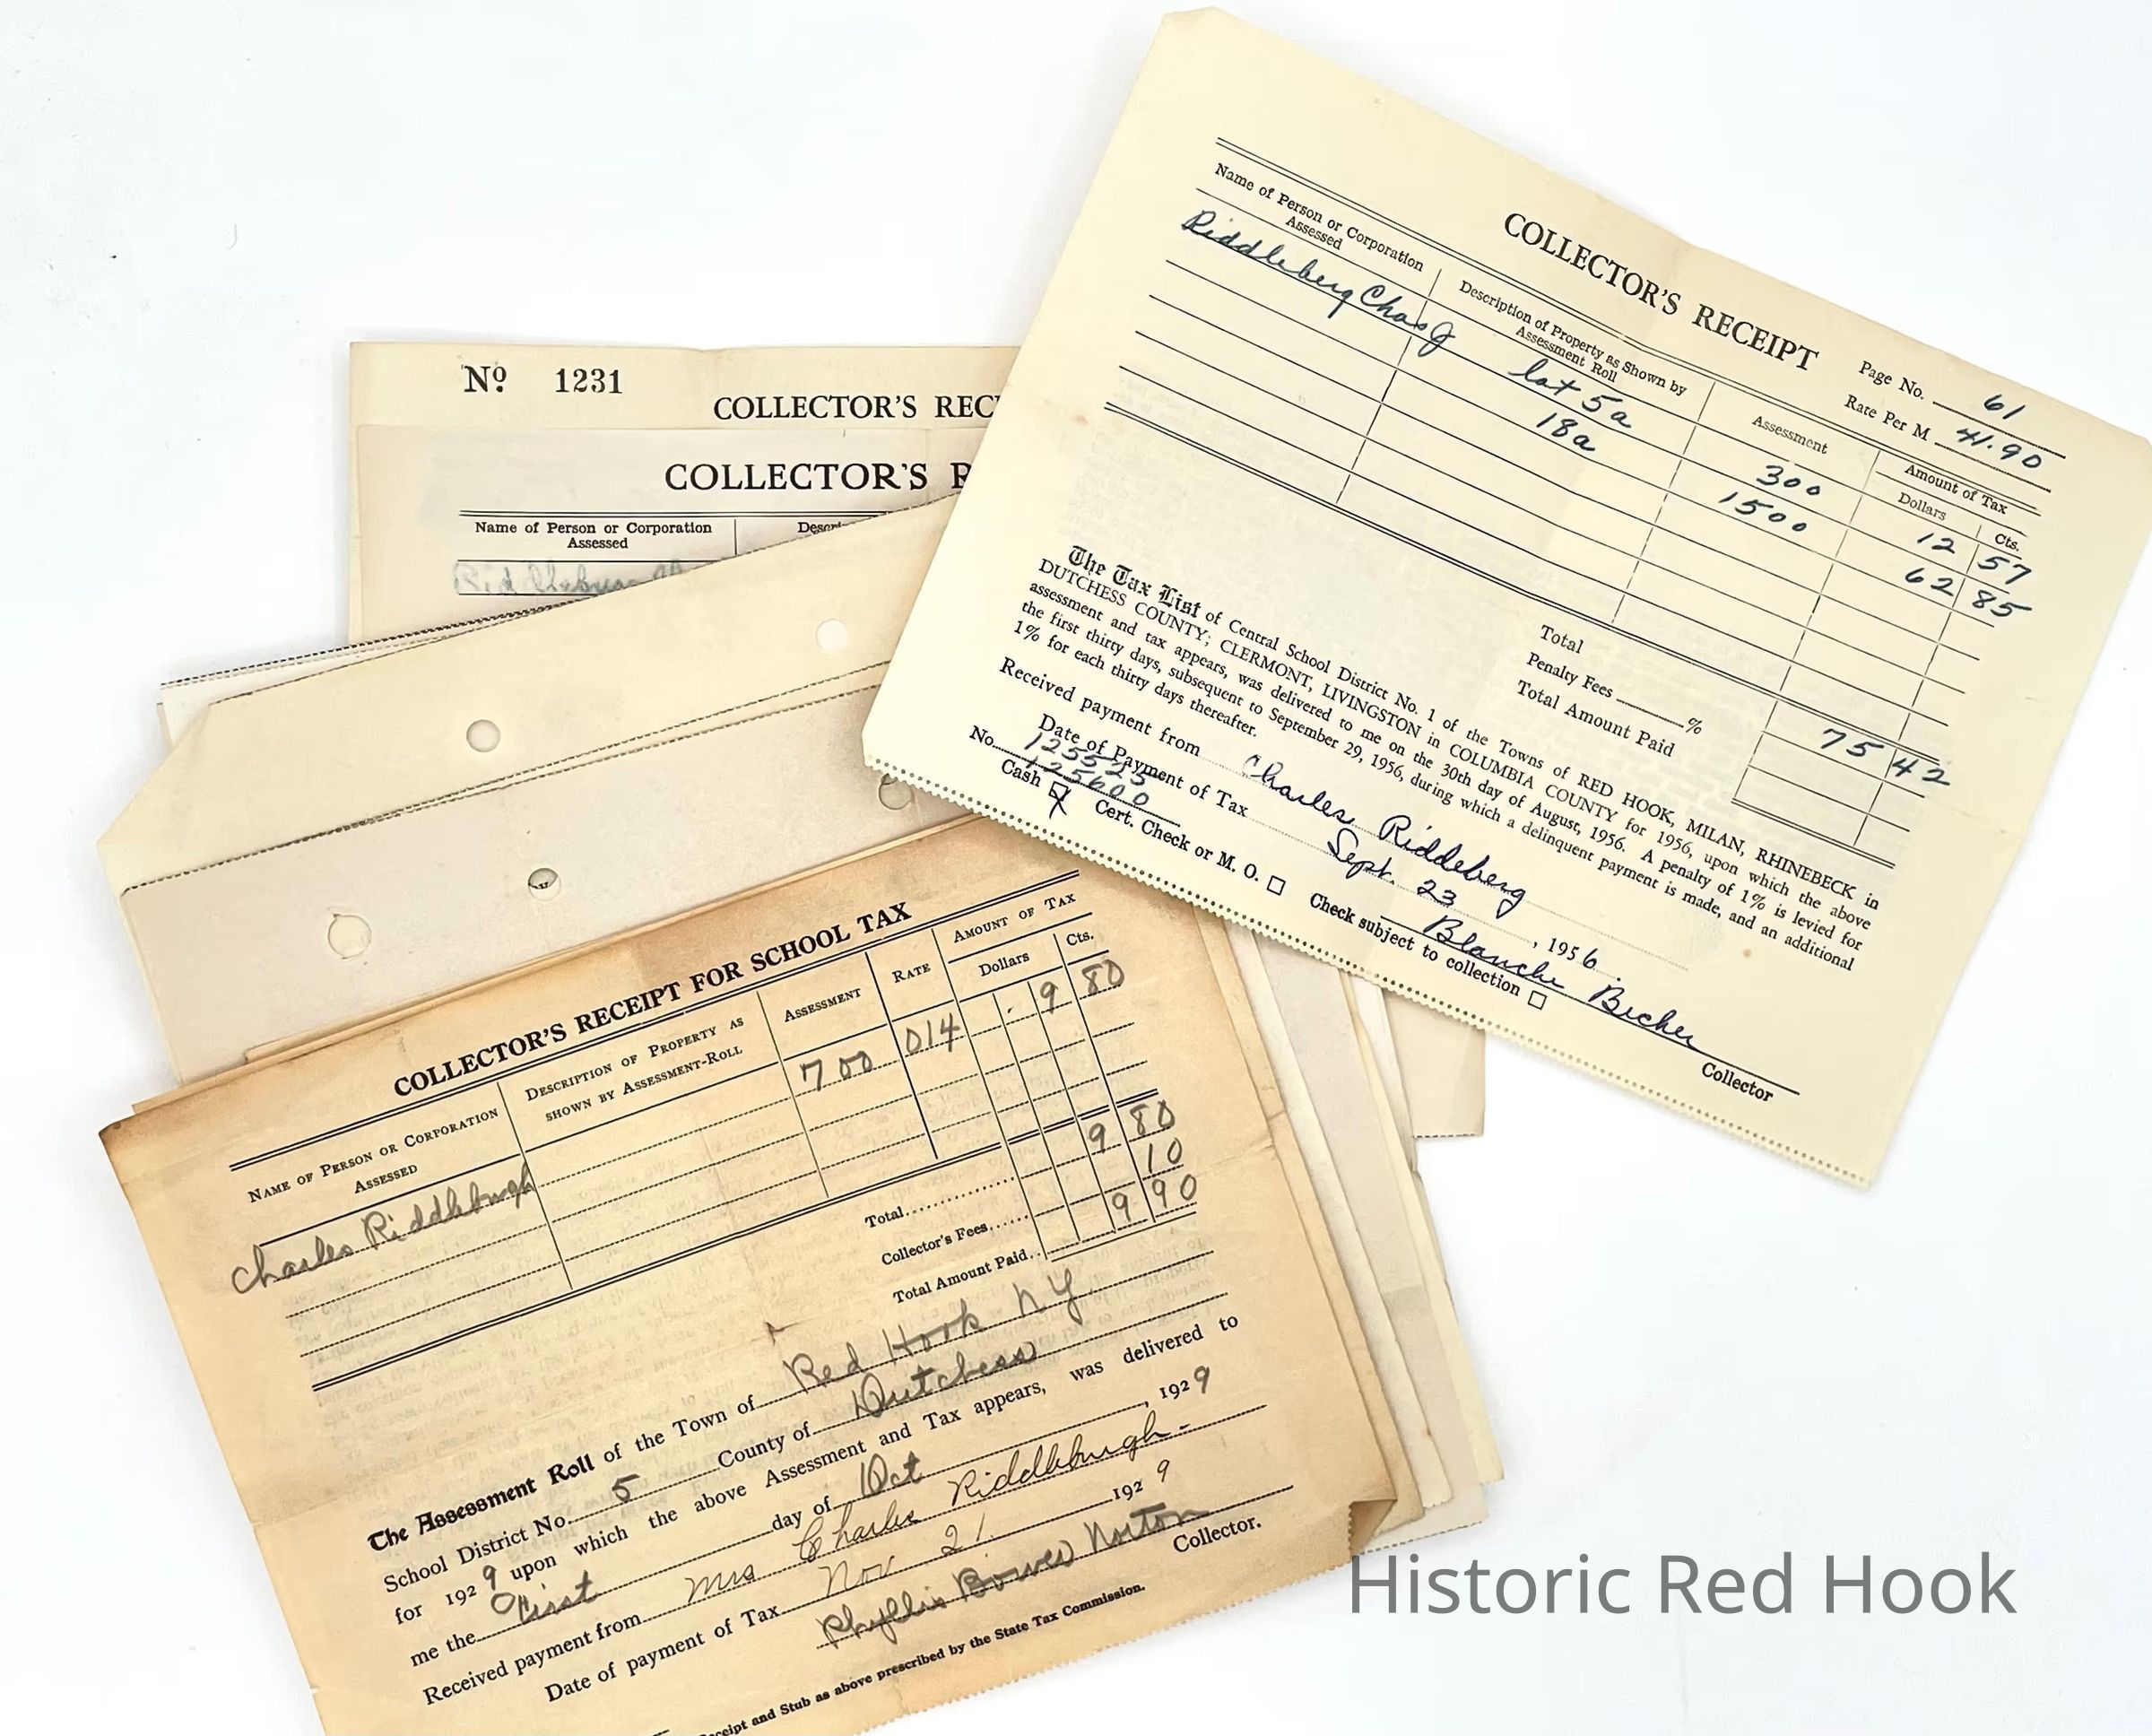 COLLECTOR'S RECEIPT
Page No. 61
Rate Per M 41.90
Name of Person or Corporation Assessed
Description of Property as Shown by Assessment Roll
Assessment
Amount of Tax
Dollars Cts.
Riddleberg Chas J lot 5a 300 12 57
18a 1500 62 85
Total 75 42
Penalty Fees %
Total Amount Paid
The Tax List of Central School District No. 1 of the Towns of RED HOOK, MILAN, RHINEBECK in
DUTCHESS COUNTY; CLERMONT, LIVINGSTON in COLUMBIA COUNTY for 1956, upon which the above
assessment and tax appears, was delivered to me on the 30th day of August, 1956. A penalty of 1% is levied for
the first thirty days, subsequent to September 29, 1956, during which a delinquent payment is made, and an additional
1% for each thirty days thereafter.
Received payment from Charles Riddeberg
Date of Payment of Tax Sept. 23, 1956.
No. 125525
125600
Blanche Becker
Collector
Cash Cert. Check or M. O. Check subject to collection
Nº 1231
COLLECTOR'S REC
COLLECTOR'S R
Name of Person or Corporation
Assessed
Descri
COLLECTOR'S RECEIPT FOR SCHOOL TAX
NAME OF PERSON OR CORPORATION ASSESSED
DESCRIPTION OF PROPERTY AS SHOWN BY ASSESSMENT-ROLL
ASSESSMENT
RATE
AMOUNT OF TAX
Dollars Cts.
Charles Riddlebrugh 700 014 9 80
Total 9 80
Collector's Fees 10
Total Amount Paid 9 90
The Assessment Roll of the Town of Red Hook NY
School District No. 5 County of Dutchess
for 1929 upon which the above Assessment and Tax appears, was delivered to
me the First day of Oct, 1929
Received payment from Mrs Charles Riddlebrugh-
Date of payment of Tax Nov 21 1929
Phyllis Bowes Norton Collector.
eceipt and Stub as above prescribed by the State Tax Commission.
Historic Red Hook